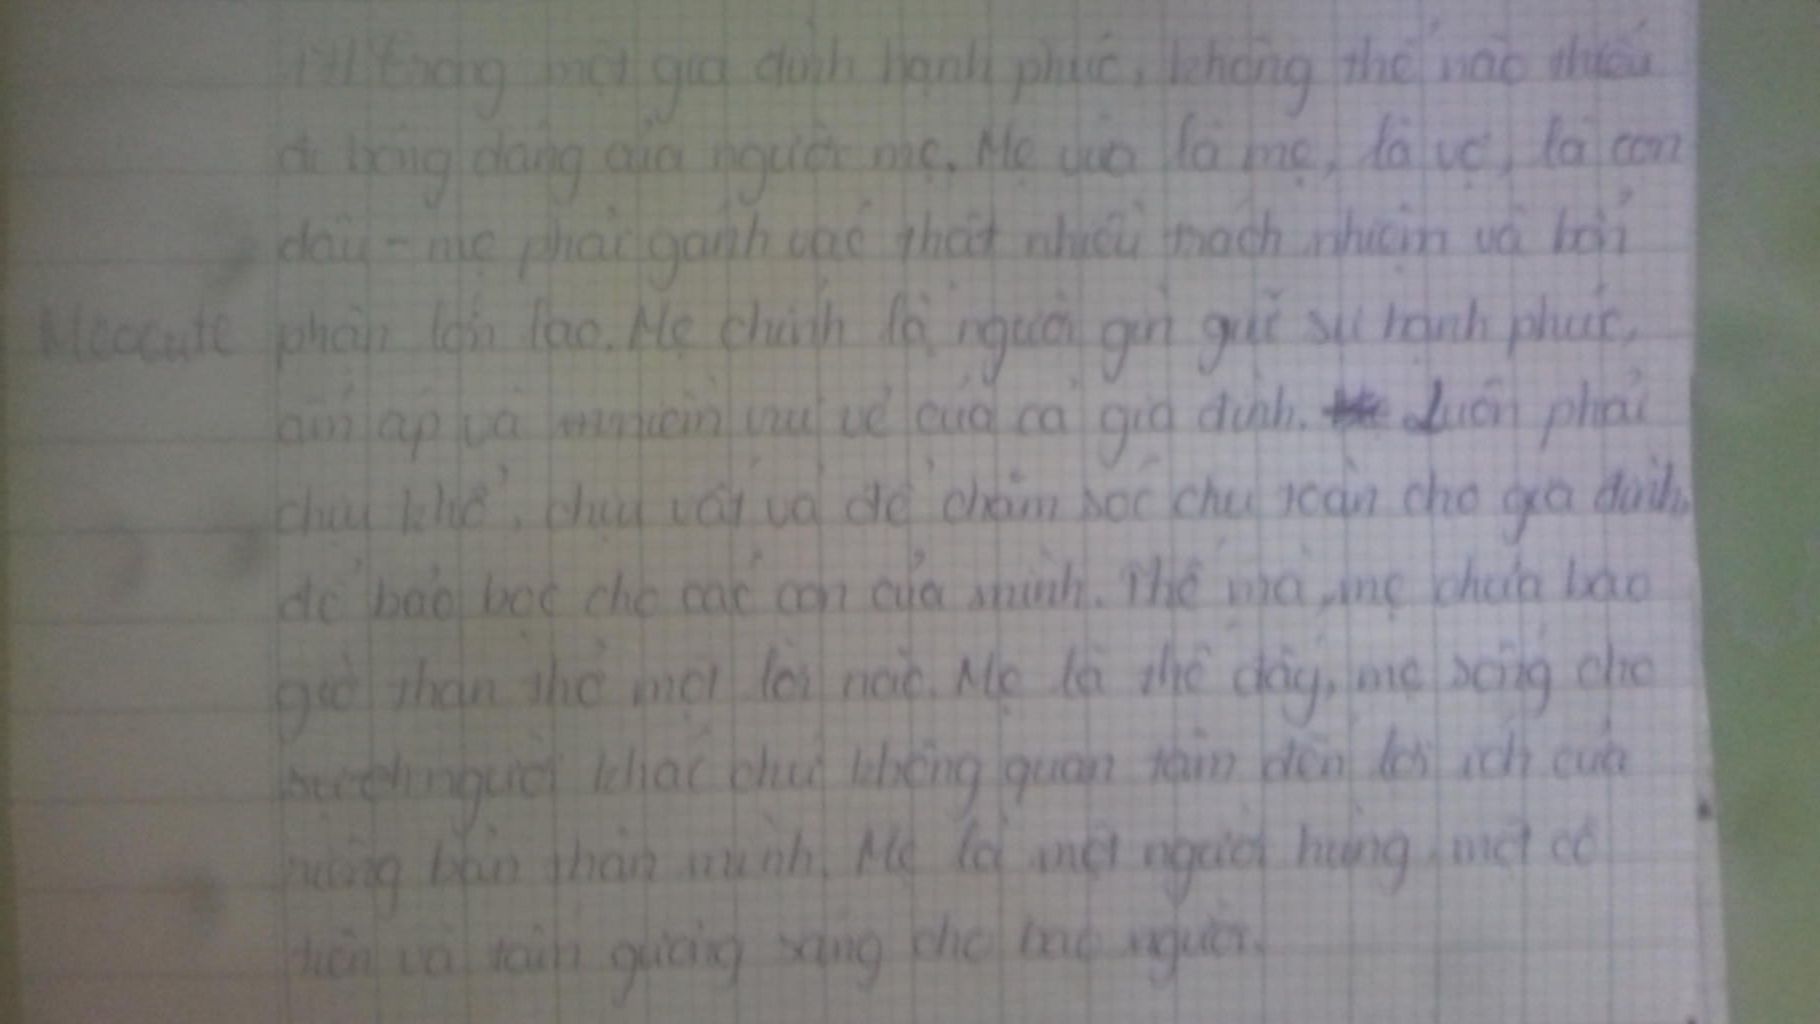 trong một gia đình hạnh phúc, không thể nào thiếu
đi bóng dáng của người mẹ. Mẹ vừa là mẹ, là vợ, là con
dâu - mẹ phải gánh vác thật nhiều trách nhiệm và bổn
Meocute phận lớn lao. Mẹ chính là người gìn giữ sự hạnh phúc,
ấm áp và niềm vui vẻ của cả gia đình. Luôn phải
chịu khổ, chịu vất vả để chăm sóc chu toàn cho gia đình,
để bảo bọc cho các con của mình. Thế mà, mẹ chưa bao
giờ than thở một lời nào. Mẹ là thế đấy, mẹ sống cho
người khác chứ không quan tâm đến lợi ích của
riêng bản thân mình. Mẹ là một người hùng, một cô
tiên và tấm gương sáng cho bao người.